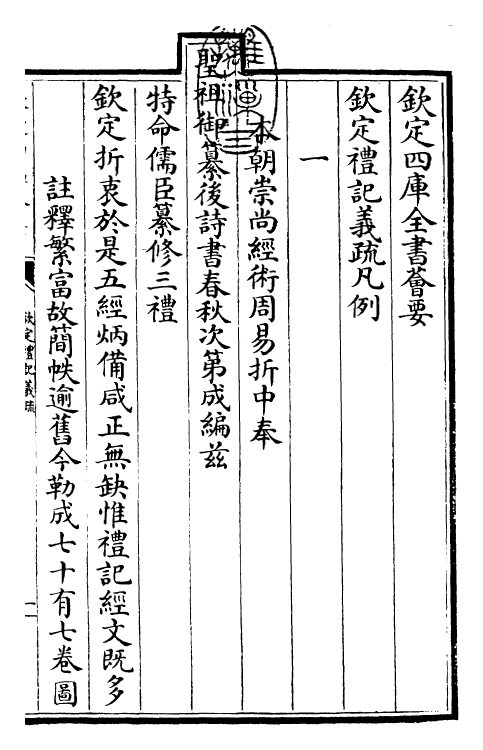 欽定四庫全書薈要
欽定禮記義疏凡例
一
本朝崇尚經術周易折中奉
聖祖御纂後詩書春秋次第成編茲
特命儒臣纂修三禮
欽定折衷於是五經炳備咸正無缺惟禮記經文既多
註釋繁富故簡帙逾舊今勒成七十有七卷圖
欽定禮記義疏
一